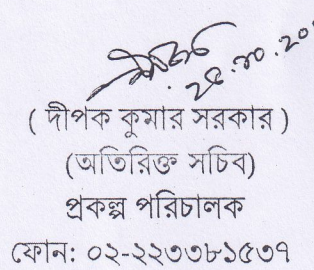 ( দীপক কুমার সরকার )
(অতিরিক্ত সচিব)
প্রকল্প পরিচালক
ফোন: ০২-২২৩৩৮১৫৩৭